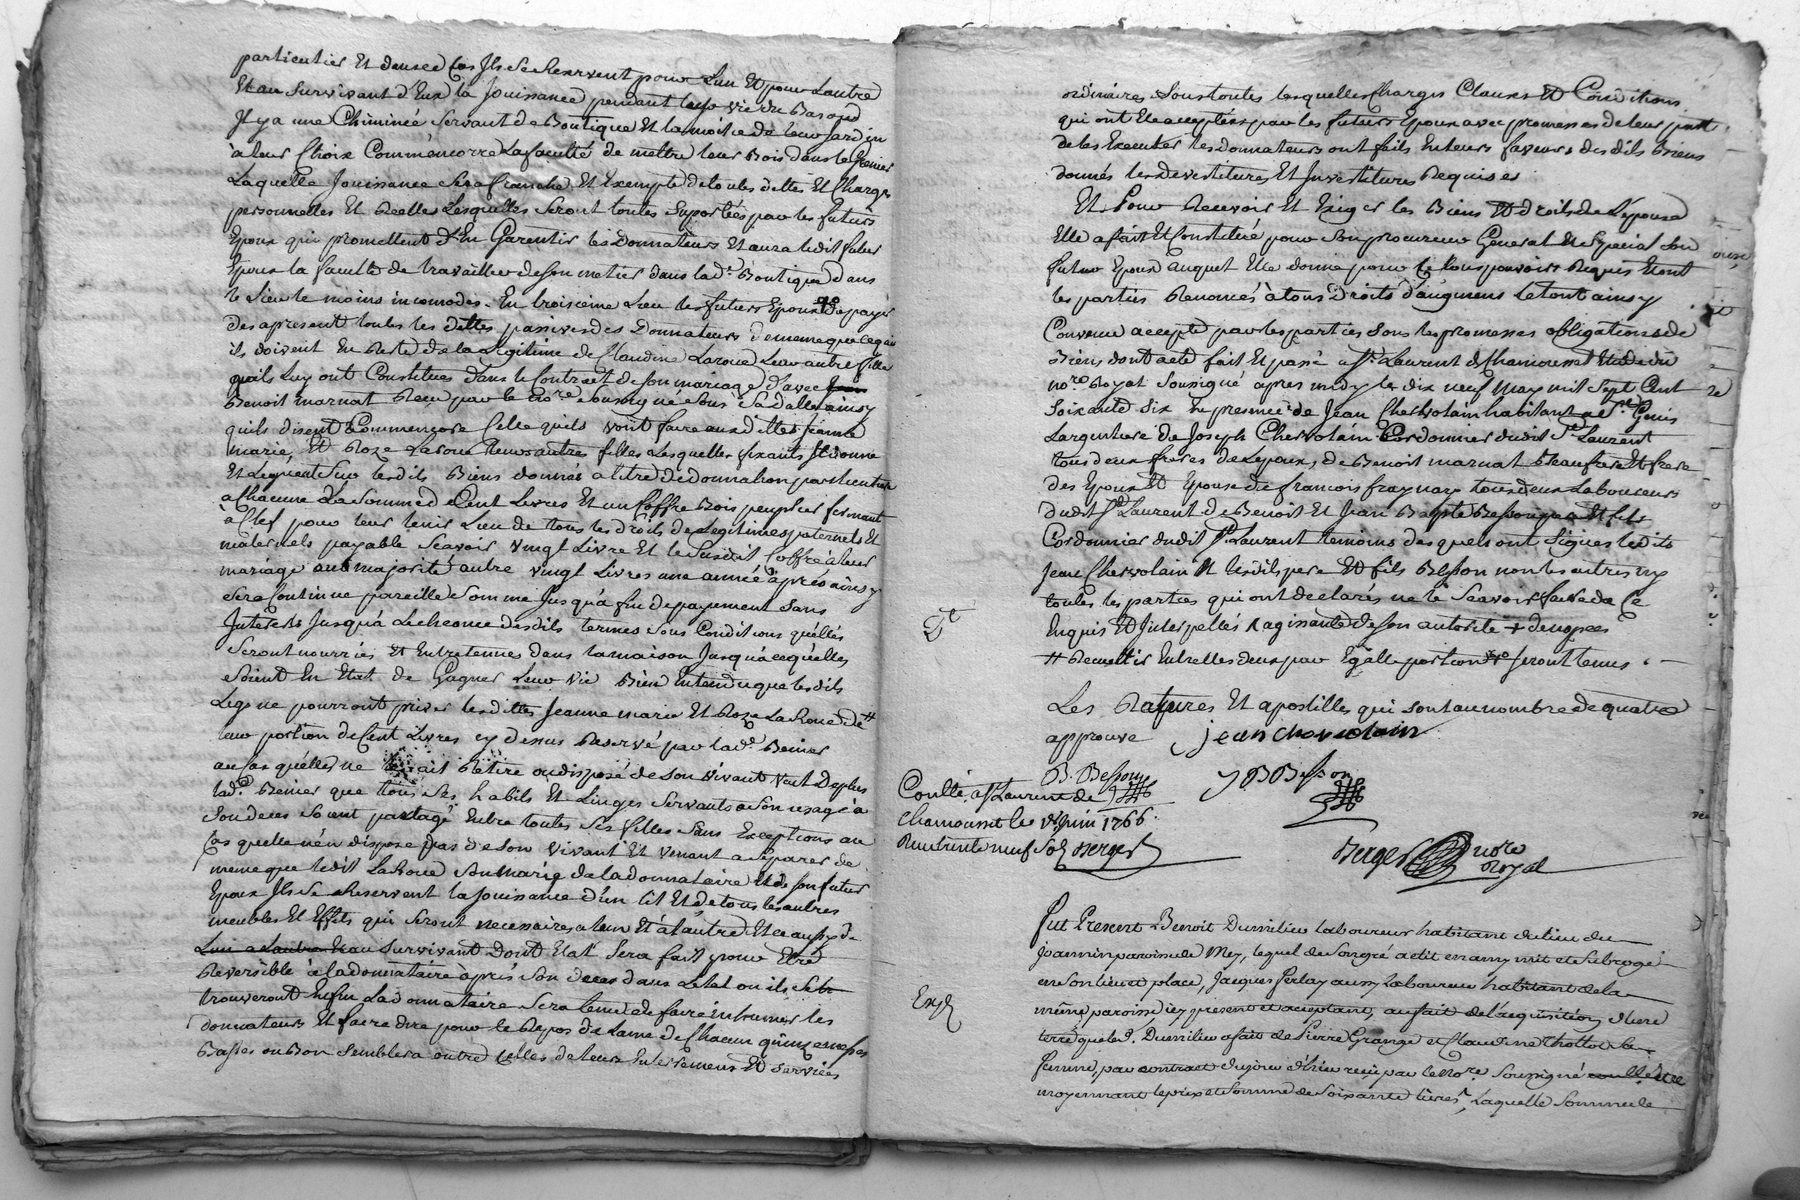 particulier Et dans ce Cas Ils Se Reservent pour Lun Et pour Lautre
Et au Survivant d'Eux la Jouissance pendant leur vie du Bas ou
Il y a une Cheminée Servant de Boutique Et la moitié de leur Jardin
à leur Choix Comm'encorre La faculté de mettre leur Bois dans le Grenier
Laquelle Jouissance Sera franche Et Exempte de toutes dettes Et Charges
personnelles Et Reelles Lesquelles Seront toutes Suportées par les futurs
Epoux qui promettent d'En Garentir les Donnateurs Et aura ledit futur
Epoux la faculté de travailler de Son metier dans lad.e Boutique dans
le Lieu le moins incomode. En troisieme Lieu les futurs Epoux de payer
des apresent toutes les dettes passives des Donnateurs de meme que ce qu
ils doivent En Reste de la Legitime de Claudine Laroue Leur autre fille
quils Luy ont Constituée dans le Contract de Son mariage d'avec
Benoit marnat Reçu par le No.re Soussigné Sous Sa datte ainsy
quils disent Comm'encore Celle quils vont faire aux dittes Jeanne
marie, Et Roze Laroue Leurs autres filles Lesquelles fixants Il donne
Et Leguent Sur lesdits Biens donnés a titre de donnation particuliere
a Chacune La Somme d Cent Livres Et un Coffre Bois peuplier fermant
à Clef pour leur tenir Lieu de tous les droits de Legitimes paternels Et
maternels payable Scavoir vingt Livre Et le Susdit Coffre à leur
mariage ou majorité autre vingt Livres une année après ainsy
Sera Continue pareille Somme Jusqu'a fin de payement Sans
Interests Jusqu'à Lecheance desdits termes Sous Conditions qu'elles
Seront nourries Et Entretenues dans la maison Jusqu'a ce qu'elles
Soient En Etat de Gagner Leur vie Bien Entendu que lesdits
Legs ne pourront priver lesdittes Jeanne marie Et Roze La Roue de #
leur portion de Cent Livres cy dessus Reservé par lad.e Benier
au Cas qu'elle ne Retire ou dispose de Son vivant Veut De plus
lad.e Benier que tous Ses habits Et Linges Servants a Son usage à
Son deces Soient partagé Entre toutes Ses filles Sans Exceptions au
Cas quelle n'en dispose pas de Son vivant Et venant a Separer de
meme que ledit LaRoue Son marie de la donnataire Et de Son futur
Epoux Ils Se Reservent la Jouissance d'un lit Et de tous les autres
meubles Et Effets qui Seront necessaires a leur Et à L'autre Et ce aussy de
Lun a Lautre Et au Survivant Dont Etat Sera fait pour Etre
Reversible à la donnataire après Son deces dans Letat ou ils Se
trouveront Enfin La donnataire Sera tenue de faire inhumer les
donnateurs Et faire dire pour le Repos de L'ame de Chacun quinze messes
Basses ou Bon Semblera outre Celles de leurs Enterrement Et Services
ordinaires Sous toutes lesquelles Charges Clauses Et Conditions
qui ont Eté acceptées par les futurs Epoux avec promesses de leur part
de les Executer les donnateurs ont faits En leurs faveurs desdits Biens
donnés les devestitures Et Investitures Requises
Et Pour Recevoir Et Exiger les Biens Et droits de L'epouse
Elle a fait Et Constitué pour Son procureur General Et Special Son
futur Epoux auquel Elle donne pour Ce tous pouvoirs Requis Et ont
les parties Renoncés à tous Droits d'augment Le tout ainsy
Convenu accepté par les parties Sous les promesses obligations de
Biens dont acte fait Et passé a St. Laurent de Chamousset Etude du
no.re Royal Soussigné apres midy le dix neuf may mil Sept Cent
Soixante Six En presence de Jean Cherbolain habitant a St. Genis
Largentiere de Joseph Cherbolain Cordonnier dudit St. Laurent
tous deux freres de Lepoux, de Benoit marnat Beaufrere Et frere
des Epoux Et Epouse de francois fraynay tous deux Laboureurs
dudit St. Laurent de Benoit Et Jean Bapte Besson pere Et fils
Cordonnier dudit St. Laurent temoins desquels ont Signés ledits
Jean Cherbolain Et lesdits pere Et fils Besson non les autres ny
toutes les parties qui ont declarés ne le Scavoir faire de Ce
Enquis Et Interpellés agissante de Son autorité +
# Recueillir Entre elles deux par Egalle portion Seront tenus
Les Ratures Et apostilles qui Sont au nombre de quatre
approuvé jean cherbolain
B. Besson J B Besson
Conllé a St Laurent de
Chamousset le Juin 1766
Reçu trente neuf Sols Berger
Berger no.re Royal
Fut Present Benoit Dumilieu laboureur habitant du lieu du
Joannin paroisse de Mey, lequel de Son gré a dit en amy mit et Subrogé
en Son lieu et place, Jacques Ferlay aussy laboureur habitant de la
même paroisse icy present et acceptant, au fait de l'acquisition d'une
terre que led. Dumilieu a fait de Pierre Grange et Claudine Thollot Sa
femme, par contract du jour d'hier reçu par le No.re Soussigné
moyennant le prix et Somme de Soixante livres, laquelle Somme le
Exp.